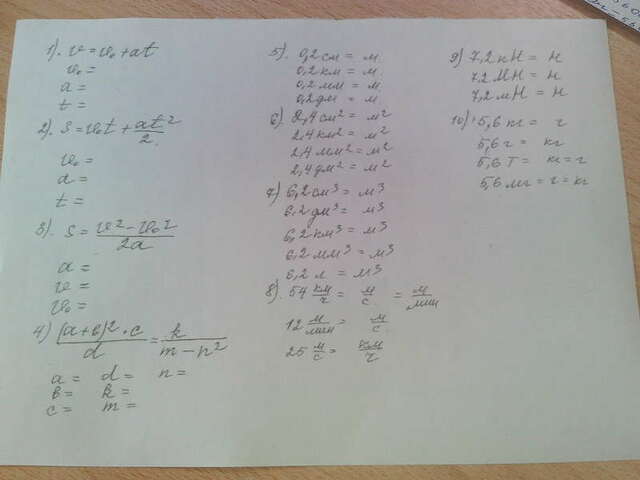 1). v = v₀ + at
v₀ =
a =
t =
2). s = v₀t + at²/2
v₀ =
a =
t =
3). s = (v² - v₀²)/2a
a =
v =
v₀ =
4) (a+b)²·c/d = k/(m-n²)
a = d = n =
b = k =
c = m =
5) 0,2 см = м
0,2 км = м
0,2 мм = м
0,2 дм = м
6) 2,4 см² = м²
2,4 км² = м²
2,4 мм² = м²
2,4 дм² = м²
7) 6,2 см³ = м³
6,2 дм³ = м³
6,2 км³ = м³
6,2 мм³ = м³
6,2 л = м³
8). 54 км/ч = м/с = м/мин
12 м/мин = м/с
25 м/с = км/ч
9) 7,2 кН = Н
7,2 МН = Н
7,2 мН = Н
10) 5,6 кг = г
5,6 г = кг
5,6 т = кг = г
5,6 мг = г = кг